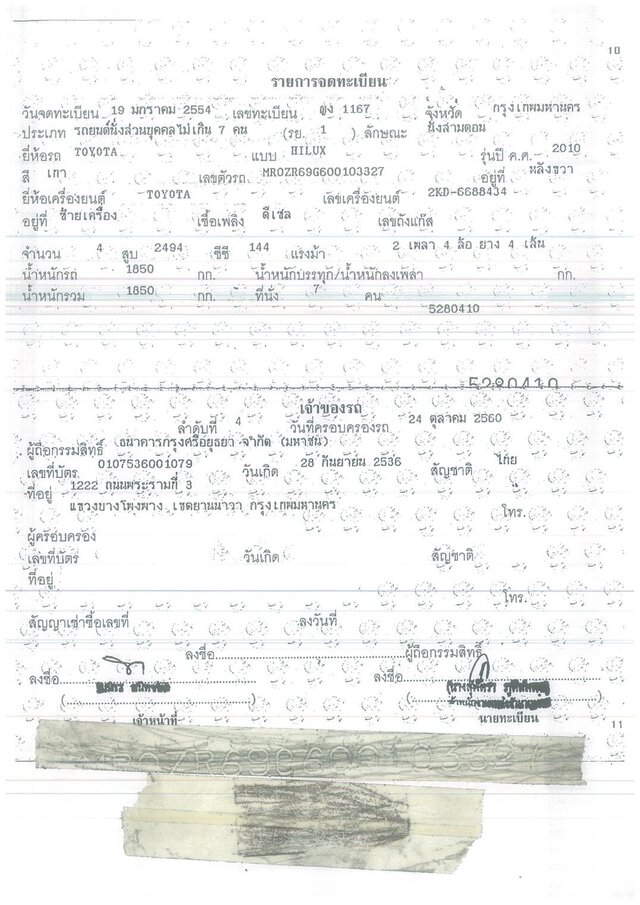 10
รายการจดทะเบียน
วันจดทะเบียน 19 มกราคม 2554 เลขทะเบียน 1167 จังหวัด กรุงเทพมหานคร
ประเภท รถยนต์นั่งส่วนบุคคลไม่เกิน 7 คน (รย. 1 ) ลักษณะ นั่งสามตอน
ยี่ห้อรถ TOYOTA แบบ HILUX รุ่นปี ค.ศ. 2010
สี เทา เลขตัวรถ MROZR69G600103327 อยู่ที่ หลังขวา
ยี่ห้อเครื่องยนต์ TOYOTA เลขเครื่องยนต์ 2KD-6688434
อยู่ที่ ซ้ายเครื่อง เชื้อเพลิง ดีเซล เลขถังแก๊ส
จำนวน 4 สูบ 2494 ซีซี 144 แรงม้า 2 เพลา 4 ล้อ ยาง 4 เส้น
น้ำหนักรถ 1850 กก. น้ำหนักบรรทุก/น้ำหนักลงเพลา กก.
น้ำหนักรวม 1850 กก. ที่นั่ง 7 คน
5280410
5280410
เจ้าของรถ
ลำดับที่ 4 วันที่ครอบครองรถ 24 ตุลาคม 2560
ผู้ถือกรรมสิทธิ์ ธนาคารกรุงศรีอยุธยา จำกัด (มหาชน)
เลขที่บัตร 0107536001079 วันเกิด 28 กันยายน 2536 สัญชาติ ไทย
ที่อยู่ 1222 ถนนพระรามที่ 3
แขวงบางโพงพาง เขตยานนาวา กรุงเทพมหานคร โทร.
ผู้ครอบครอง
เลขที่บัตร วันเกิด สัญชาติ
ที่อยู่
โทร.
สัญญาเช่าซื้อเลขที่ ลงวันที่
ลงชื่อ ผู้ถือกรรมสิทธิ์
ลงชื่อ ลงชื่อ
เจ้าหน้าที่ นายทะเบียน
11